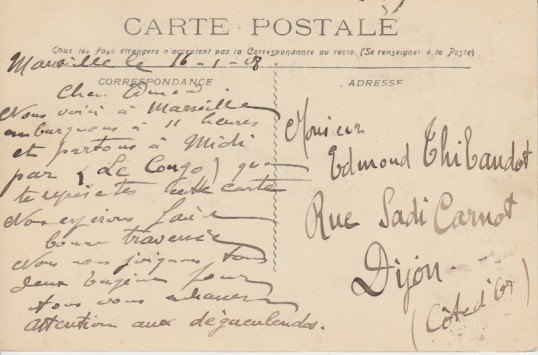 CARTE POSTALE
Tous les Pays étrangers n'acceptent pas la Correspondance au recto. (Se renseigner à la Poste)
Marseille le 16-1-08.
CORRESPONDANCE
ADRESSE
Cher Edmond
Nous voici à Marseille
embarquons à 11 heures
et partons à Midi
par (Le Congo) que
te représente cette carte
Nous espérons faire
bonne traversée
Nous nous joignons tous
deux pour
vous
attention aux
Monsieur
Edmond Thibaudot
Rue Sadi Carnot
Dijon
(Côte d'Or)